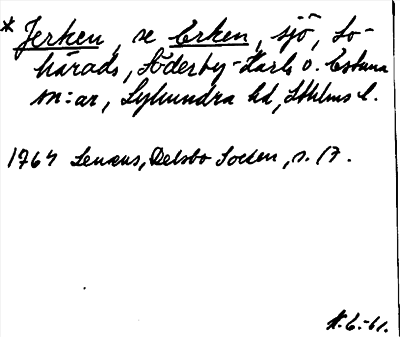 * Jerken, se Erken, sjö, Lo-
härads, Söderby-Karls o. Estuna
sn:ar, Lyhundra hd, Sthlms l.
1764 Lenæus, Delsbo Socken, s. 17.